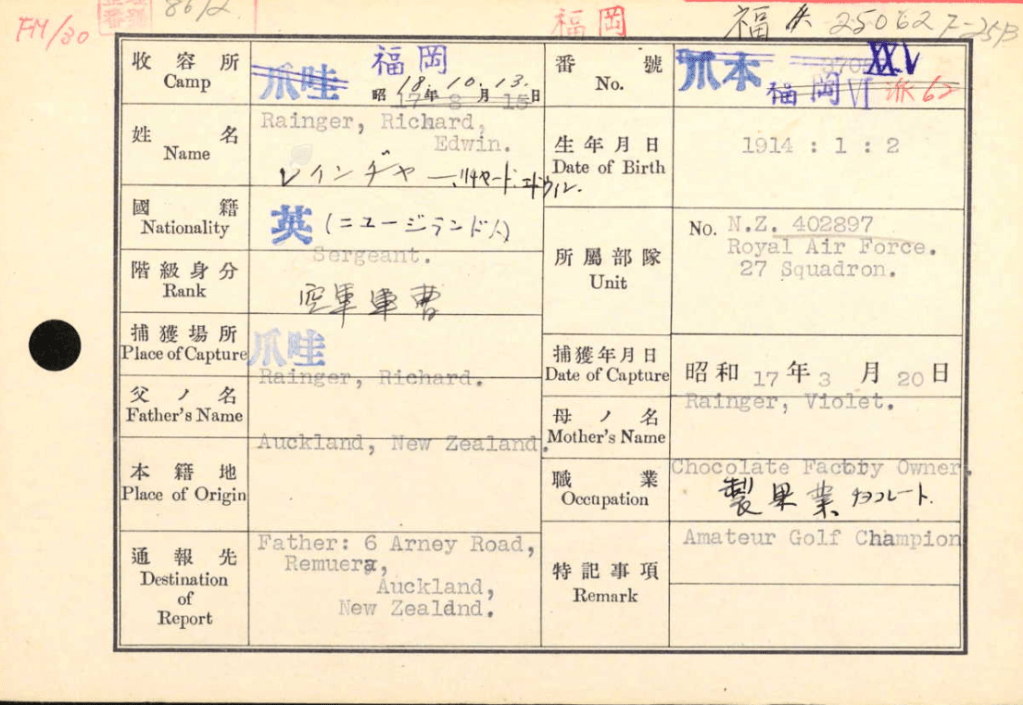 FM/30
8612
福岡
福 # 25062 7-25B
收容所
Camp
爪哇 福岡
18.10.13.
昭 17年 8 月 15日
番號
No.
爪本 XXV
福岡VI 派62
姓名
Name
Rainger, Richard,
Edwin.
レインヂャー.リチャード.エドウィン.
生年月日
Date of Birth
1914 : 1 : 2
國籍
Nationality
英 (ニュージランド人)
所屬部隊
Unit
No. N.Z. 402897
Royal Air Force.
27 Squadron.
階級身分
Rank
Sergeant.
空軍軍曹
捕獲場所
Place of Capture
爪哇
捕獲年月日
Date of Capture
昭和 17 年 3 月 20 日
父ノ名
Father's Name
Rainger, Richard.
母ノ名
Mother's Name
Rainger, Violet.
本籍地
Place of Origin
Auckland, New Zealand.
職業
Occupation
Chocolate Factory Owner.
製菓業 チョコレート.
通報先
Destination
of
Report
Father: 6 Arney Road,
Remuera,
Auckland,
New Zealdnd.
特記事項
Remark
Amateur Golf Champion